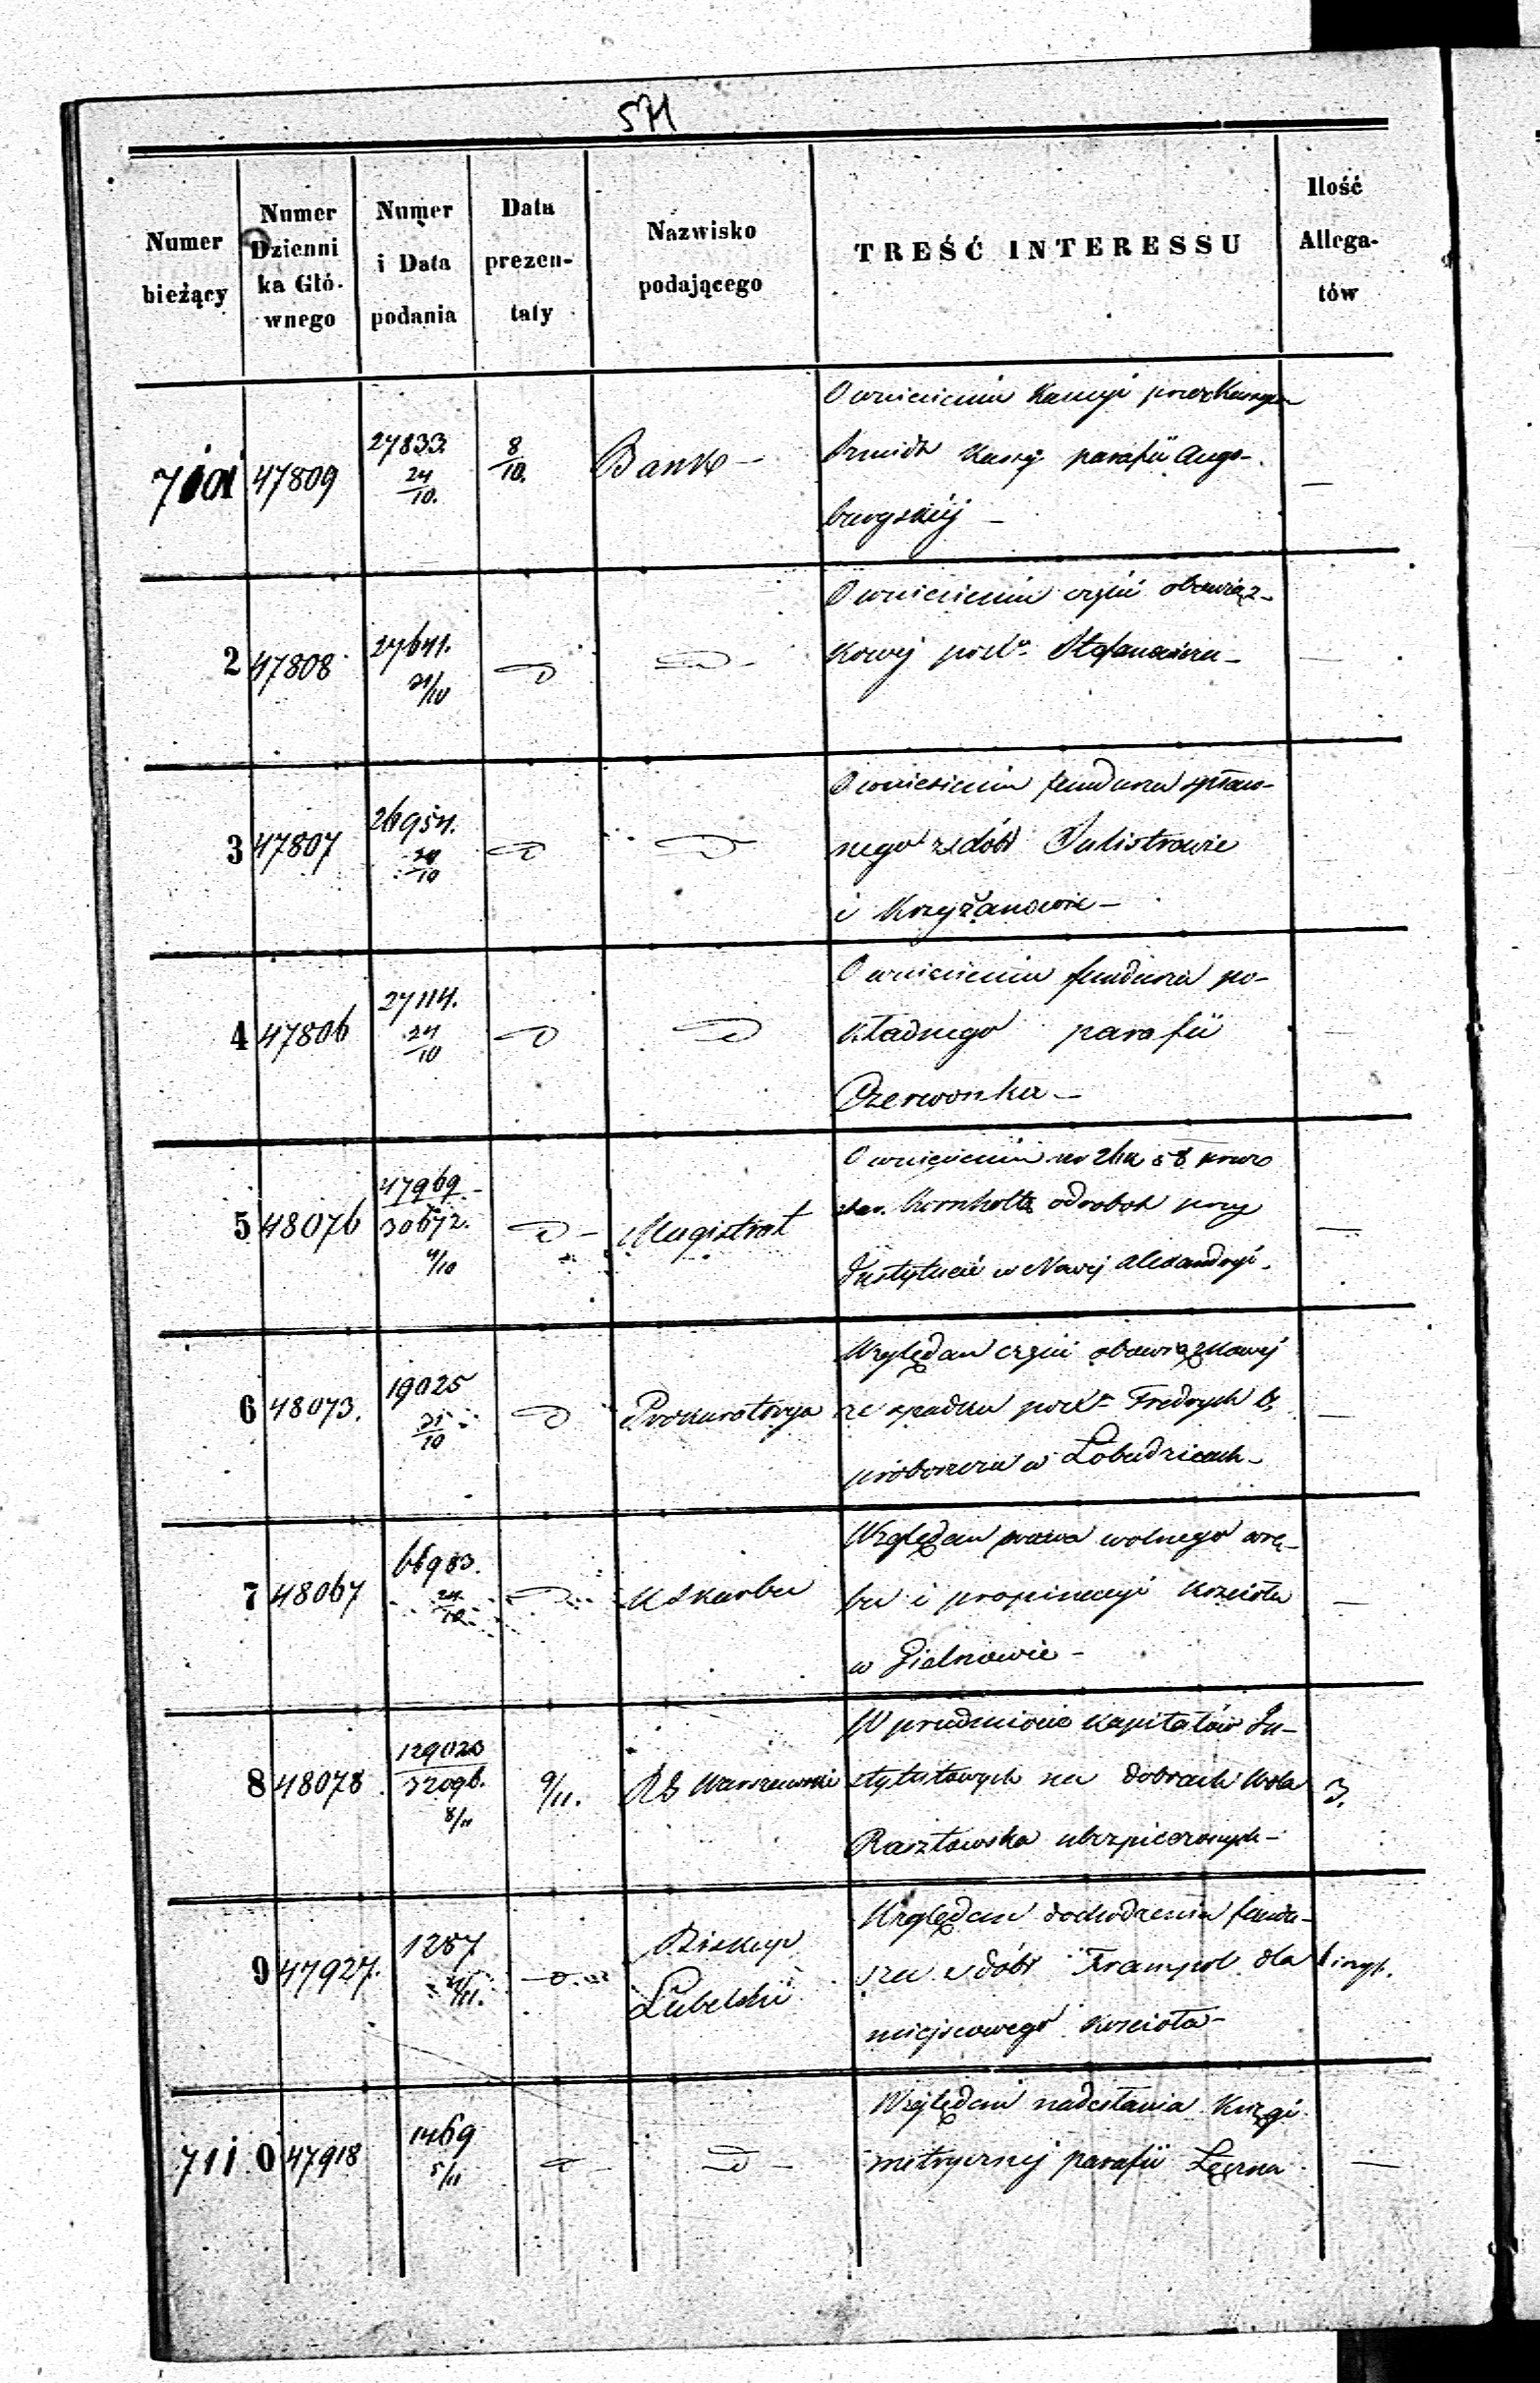 571
Numer bieżący
Numer Dzienni ka Głó- wnego
Numer i Data podania
Data prezen- taty
Nazwisko podającego
TREŚĆ INTERESSU
Ilość Allega- tów
7101 47809 27833. 24/10. 8/10. Bank –
O wniesieniu Kaucyi przez
Kassy parafii Augs-
burgskiéj –
2 47808 27641. 21/10
O wniesieniu części obowiąz-
kowej
3 47807 26954. 20/10
O wniesieniu funduszu spław-
nego z dóbr Julistrowie
i Krzyżanowie –
4 47806 27114. 24/10
O wniesieniu funduszu po-
kładnego parafii
Czerwonka –
5 48076 47969/30672. 4/10 Magistrat
O wniesieniu 58
Kornholtz odrobok przy
Instytucie w Nowej Alexandryi.
6 48073. 19025 31/10 Prokuratorya
Względem części obowiązkowej
ze spadku Fredrych b.
proboszcza w Lobudzicach –
7 48067 66983. 24/10 K Skarbu
Względem prawa wolnego wrę-
bu i propinacyi Kościoła
w Gielniowie –
8 48078 129020/32096. 8/11 9/11. RG Warszawski 3.
W przedmiocie kapitałów In-
stytutowych na dobrach Wola
Rasztowska ubezpieczonych –
9 47927. 1287 Biskup
Lubelski
Względem dochodzenia fundu-
szu z dóbr Frampol dla
miejscowego Kościoła –
7110 47918 1469 5/11
Względem nadesłania Księgi
metrycznej parafii Łęczna